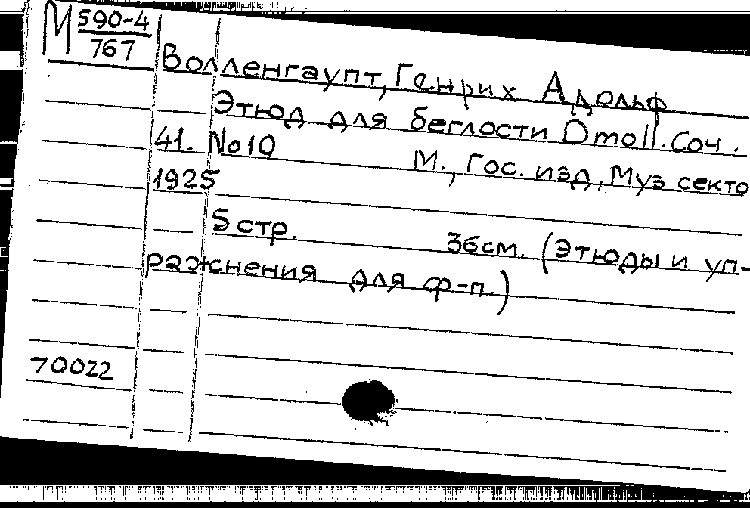 М 590-4
767
Волленгаупт, Генрих Адольф
Этюд для беглости Dmoll. Соч.
41. No 10 М., Гос. изд, Муз секто
1925
5 стр. 36см. (Этюды и уп-
ражнения для ф-п.)
70022